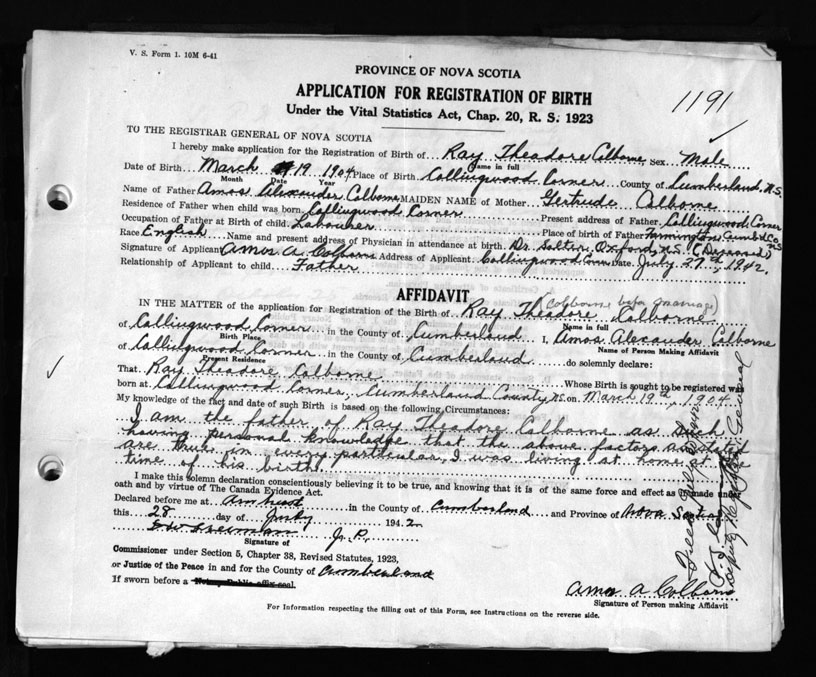 V. S. Form 1. 10M 6-41
PROVINCE OF NOVA SCOTIA
APPLICATION FOR REGISTRATION OF BIRTH
1191
Under the Vital Statistics Act, Chap. 20, R. S. 1923
TO THE REGISTRAR GENERAL OF NOVA SCOTIA
I hereby make application for the Registration of Birth of Ray Theodore Colborne Sex Male
Name in full
Date of Birth March 19 1904 Place of Birth Collingwood Corner County of Cumberland, N.S.
Month Date Year
Name of Father Amos Alexander Colborne MAIDEN NAME of Mother Gertrude Colborne
Residence of Father when child was born Collingwood Corner Present address of Father Collingwood Corner
Occupation of Father at Birth of child Labourer Place of birth of Father
Race English Name and present address of Physician in attendance at birth Dr. Oxford, N.S. (Deceased)
Signature of Applicant Amos A Colborne Address of Applicant Collingwood Corner Date July 27th, 1942,
Relationship of Applicant to child Father
AFFIDAVIT
(Colborne before marriage)
IN THE MATTER of the application for Registration of the Birth of Ray Theodore Colborne
Name in full
of Collingwood Corner in the County of Cumberland I, Amos Alexander Colborne
Birth Place Name of Person Making Affidavit
of Collingwood Corner in the County of Cumberland do solemnly declare:
Present Residence
That Ray Theodore Colborne Whose Birth is sought to be registered was
born at Collingwood Corner, Cumberland County N.S. on March 19th, 1904
My knowledge of the fact and date of such Birth is based on the following Circumstances:
I am the father of Ray Theodore Colborne as such
having personal knowledge that the above factors as stated
are true in every particular, I was living at home at the
time of his birth
I make this solemn declaration conscientiously believing it to be true, and knowing that it is of the same force and effect as if made under
oath and by virtue of The Canada Evidence Act.
Declared before me at Amherst in the County of Cumberland and Province of Nova Scotia
this 28 day of July 1942
J.P.
Signature of
Commissioner under Section 5, Chapter 38, Revised Statutes, 1923,
or Justice of the Peace in and for the County of Cumberland
If sworn before a Notary Public affix seal.
Amos A Colborne
Signature of Person making Affidavit
For Information respecting the filling out of this Form, see Instructions on the reverse side.
Deputy Registrar General